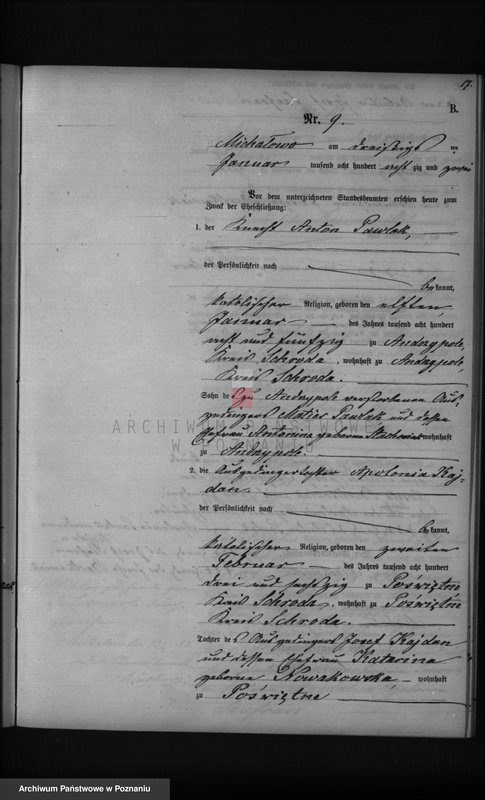 17.
B.
Nr. 9.
Michałowo am dreißigsten
Januar tausend acht hundert acht zig und zwei
Vor dem unterzeichneten Standesbeamten erschien heute zum
Zweck der Eheschließung:
1. der Knecht Anton Pawlak,
der Persönlichkeit nach
bekannt,
katolischer Religion, geboren den elften
Januar des Jahres tausend acht hundert
acht und fünfzig zu Andzypole,
Kreis Schroda, wohnhaft zu Andzypole,
Kreis Schroda.
Sohn des zu Andzypole verstorbenen Aus-
gedingers und dessen
Ehefrau Antonina geborene wohnhaft
zu Andzypole
2. die Ausgedingertochter Apolonia Kaj-
dan
der Persönlichkeit nach
bekannt,
katolischer Religion, geboren den zweiten
Februar des Jahres tausend acht hundert
drei und sechszig zu Poświętne
Kreis Schroda, wohnhaft zu Poświętne
Kreis Schroda.
Tochter des Ausgedingers Josef Kajdan
und dessen Ehefrau Katarina
geborene Nowakowska, wohnhaft
zu Poświętne
ARCHIWUM PAŃSTWOWE
W POZNANIU
Archiwum Państwowe w Poznaniu